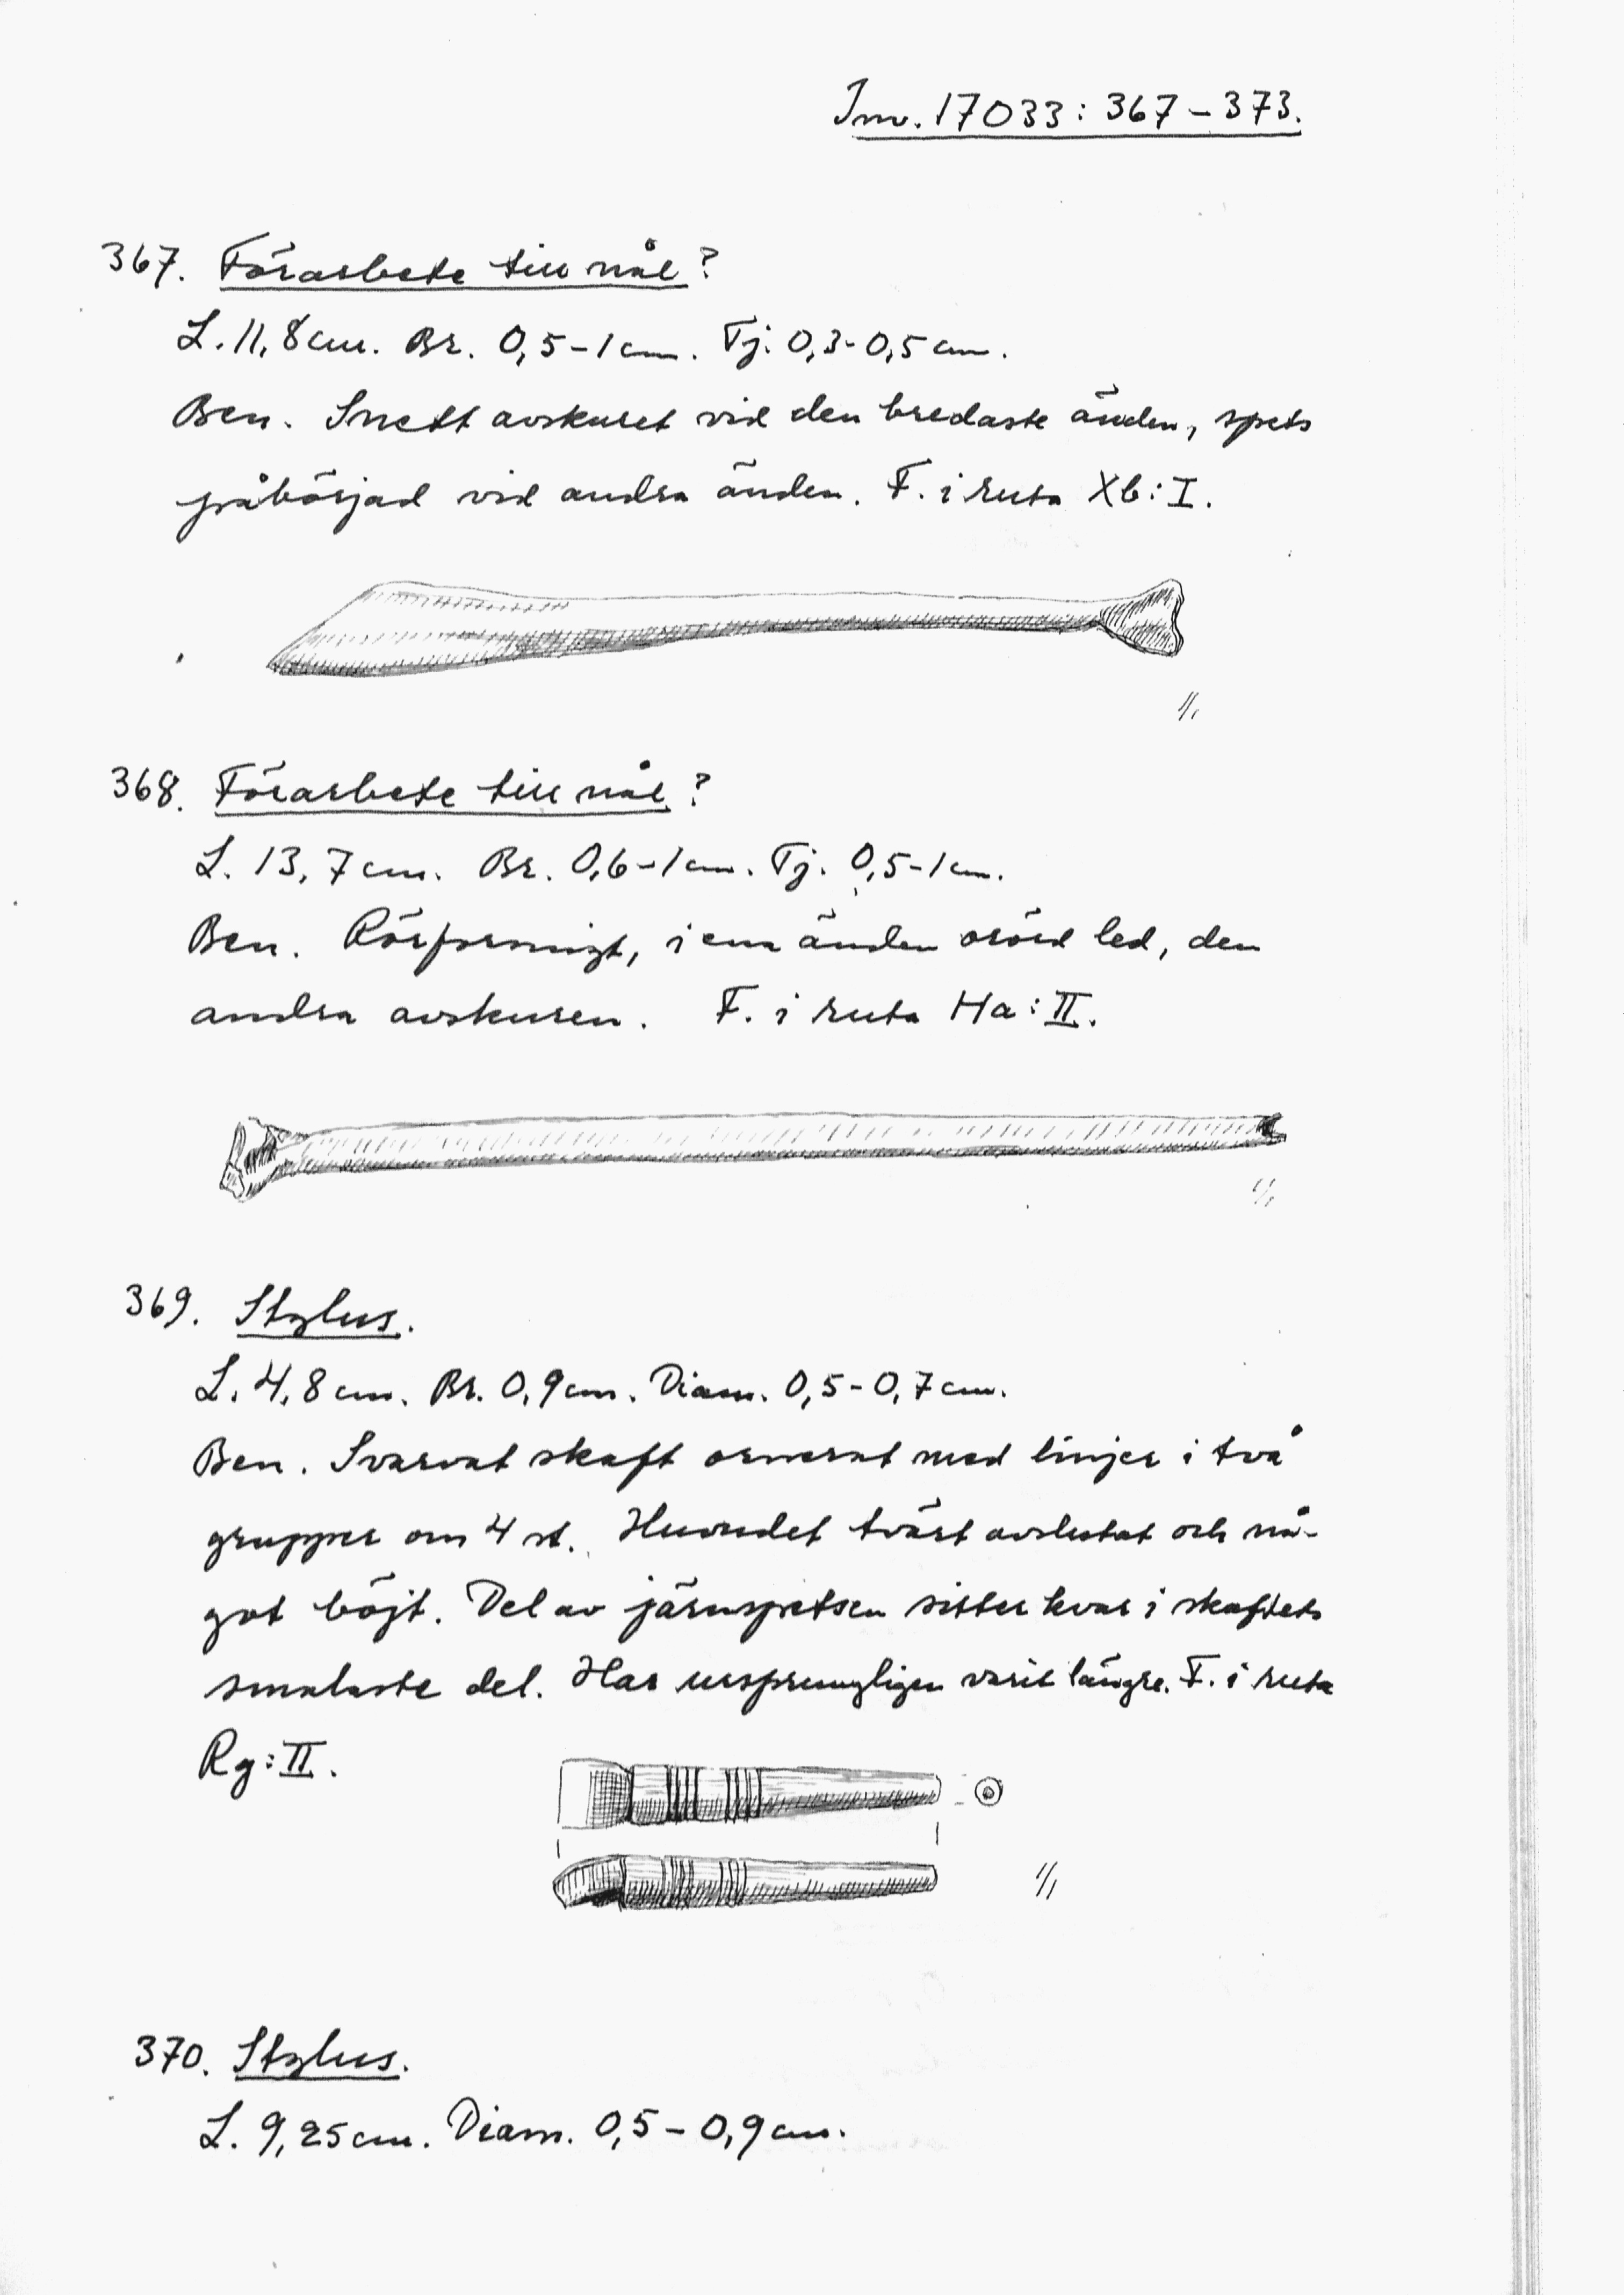 Inv. 17033: 367 – 373.
367. Förarbete till nål?
L. 11,8 cm. Br. 0,5 – 1 cm. Tj. 0,3 - 0,5 cm.
Ben. Snett avskuret vid den bredaste änden, spets
påbörjad vid andra änden. F. i ruta Xb: I.
1/1
368. Förarbete till nål?
L. 13,7 cm. Br. 0,6 – 1 cm. Tj. 0,5 – 1 cm.
Ben. Rörformigt, i ena änden orörd led, den
andra avskuren. F. i ruta Ha: II.
1/1
369. Stylus.
L. 4,8 cm. Br. 0,9 cm. Diam. 0,5 – 0,7 cm.
Ben. Svarvat skaft ornerat med linjer i två
grupper om 4 st. Huvudet tvärt avslutat och nå-
got böjt. Del av järnspetsen sitter kvar i skaftets
smalaste del. Har ursprungligen varit längre. F. i ruta
Rg: II.
1/1
370. Stylus.
L. 9,25 cm. Diam. 0,5 – 0,9 cm.